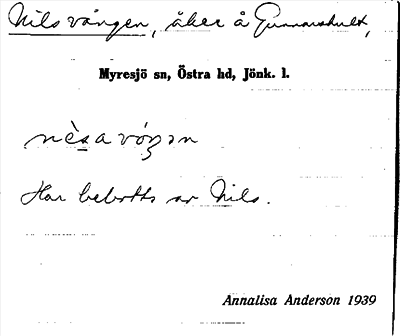 Nilsvången, åker å Gunnarshult,
Myresjö sn, Östra hd, Jönk. l.
nèsavóŋən
Har bebotts av Nils.
Annalisa Anderson 1939